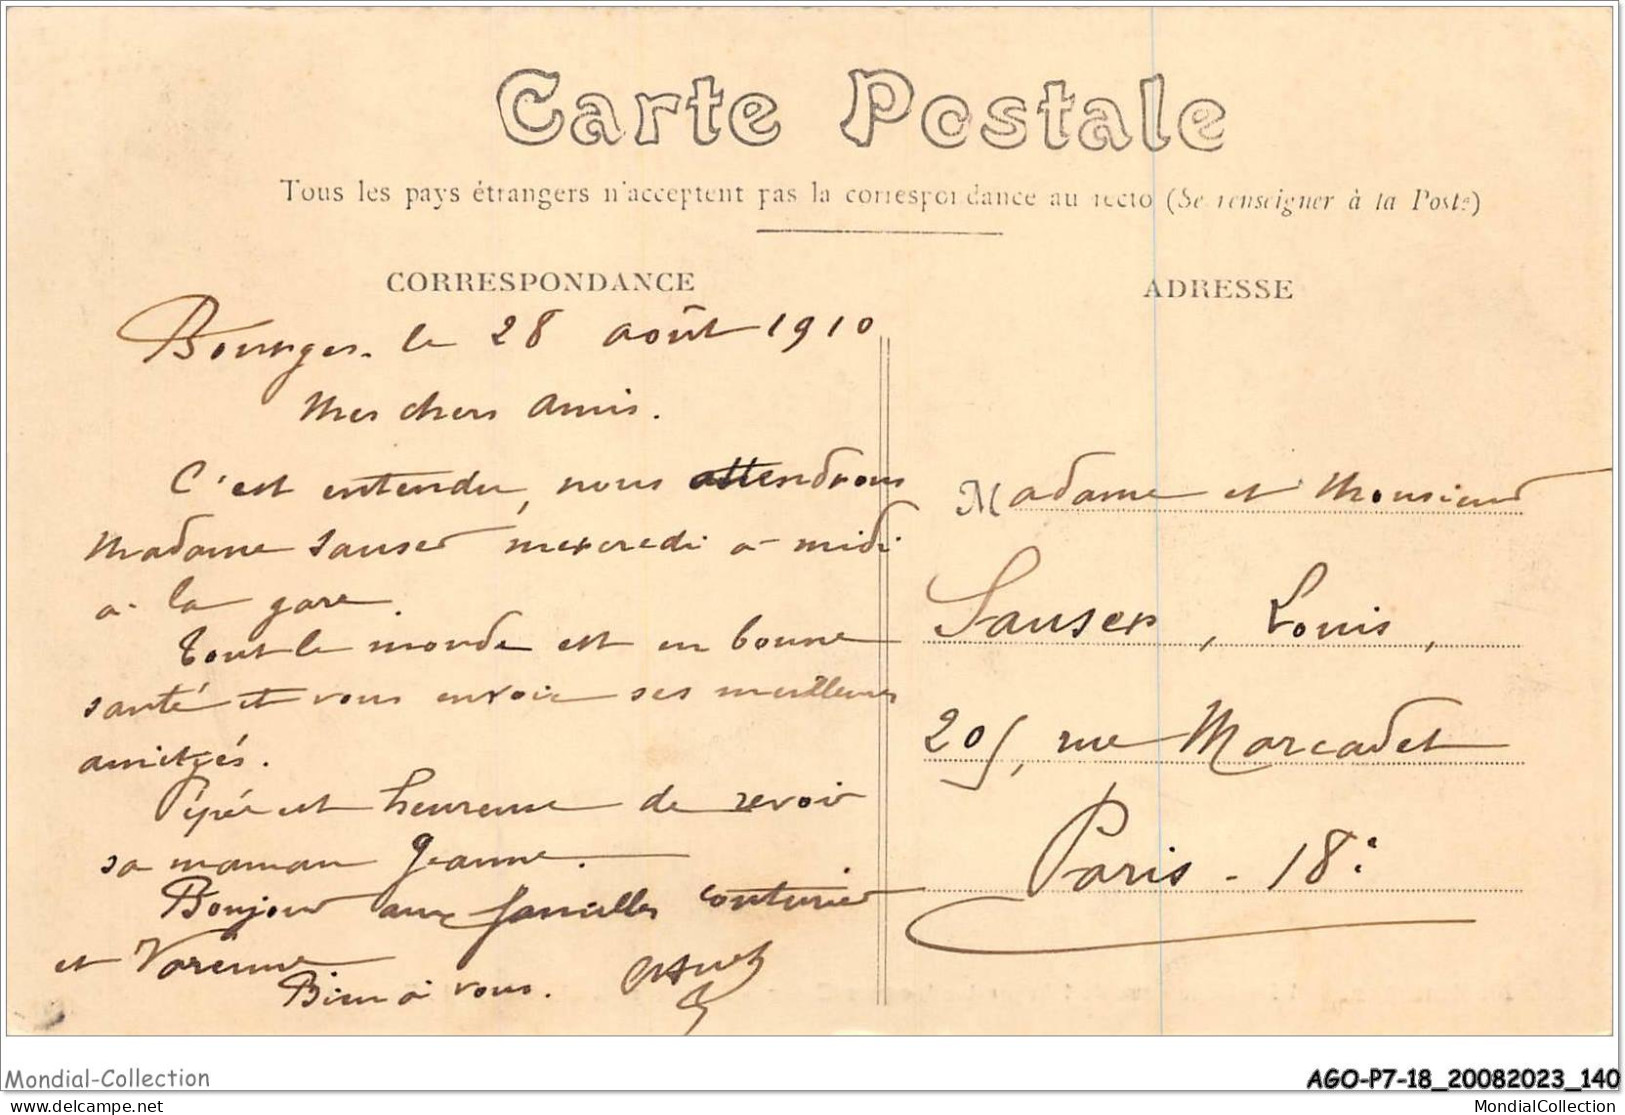 Carte Postale
Tous les pays étrangers n'acceptent pas la correspondance au recto (Se renseigner à la Poste)
CORRESPONDANCE
Bourges. le 28 août 1910
Mes chers amis.
C'est entendu, nous attendrons
Madame Sauser mercredi à midi
à la gare.
Tout le monde est en bonne
santé et vous envoie ses meilleures
amitiés.
Pépée est heureuse de revoir
sa maman Jeanne.
Bonjour aux familles Couturier
et Varenne
Bien à vous.
ADRESSE
Madame et Monsieur
Sauser, Louis,
205, rue Marcadet
Paris - 18e
Mondial-Collection
AGO-P7-18_20082023_140
delcampe.net
MondialCollection